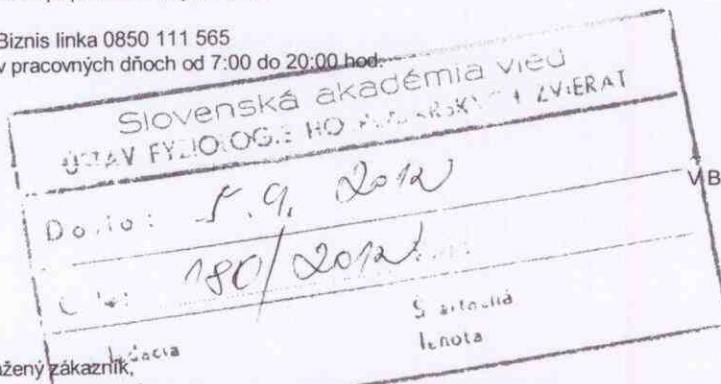 Biznis linka 0850 111 565
v pracovných dňoch od 7:00 do 20:00 hod.
Slovenská akadémia vied
ÚSTAV FYZIOLÓGIE HO ZVIERAT
Došlo: 5. 9. 2012
V B
180/2012
ažený zákazník,